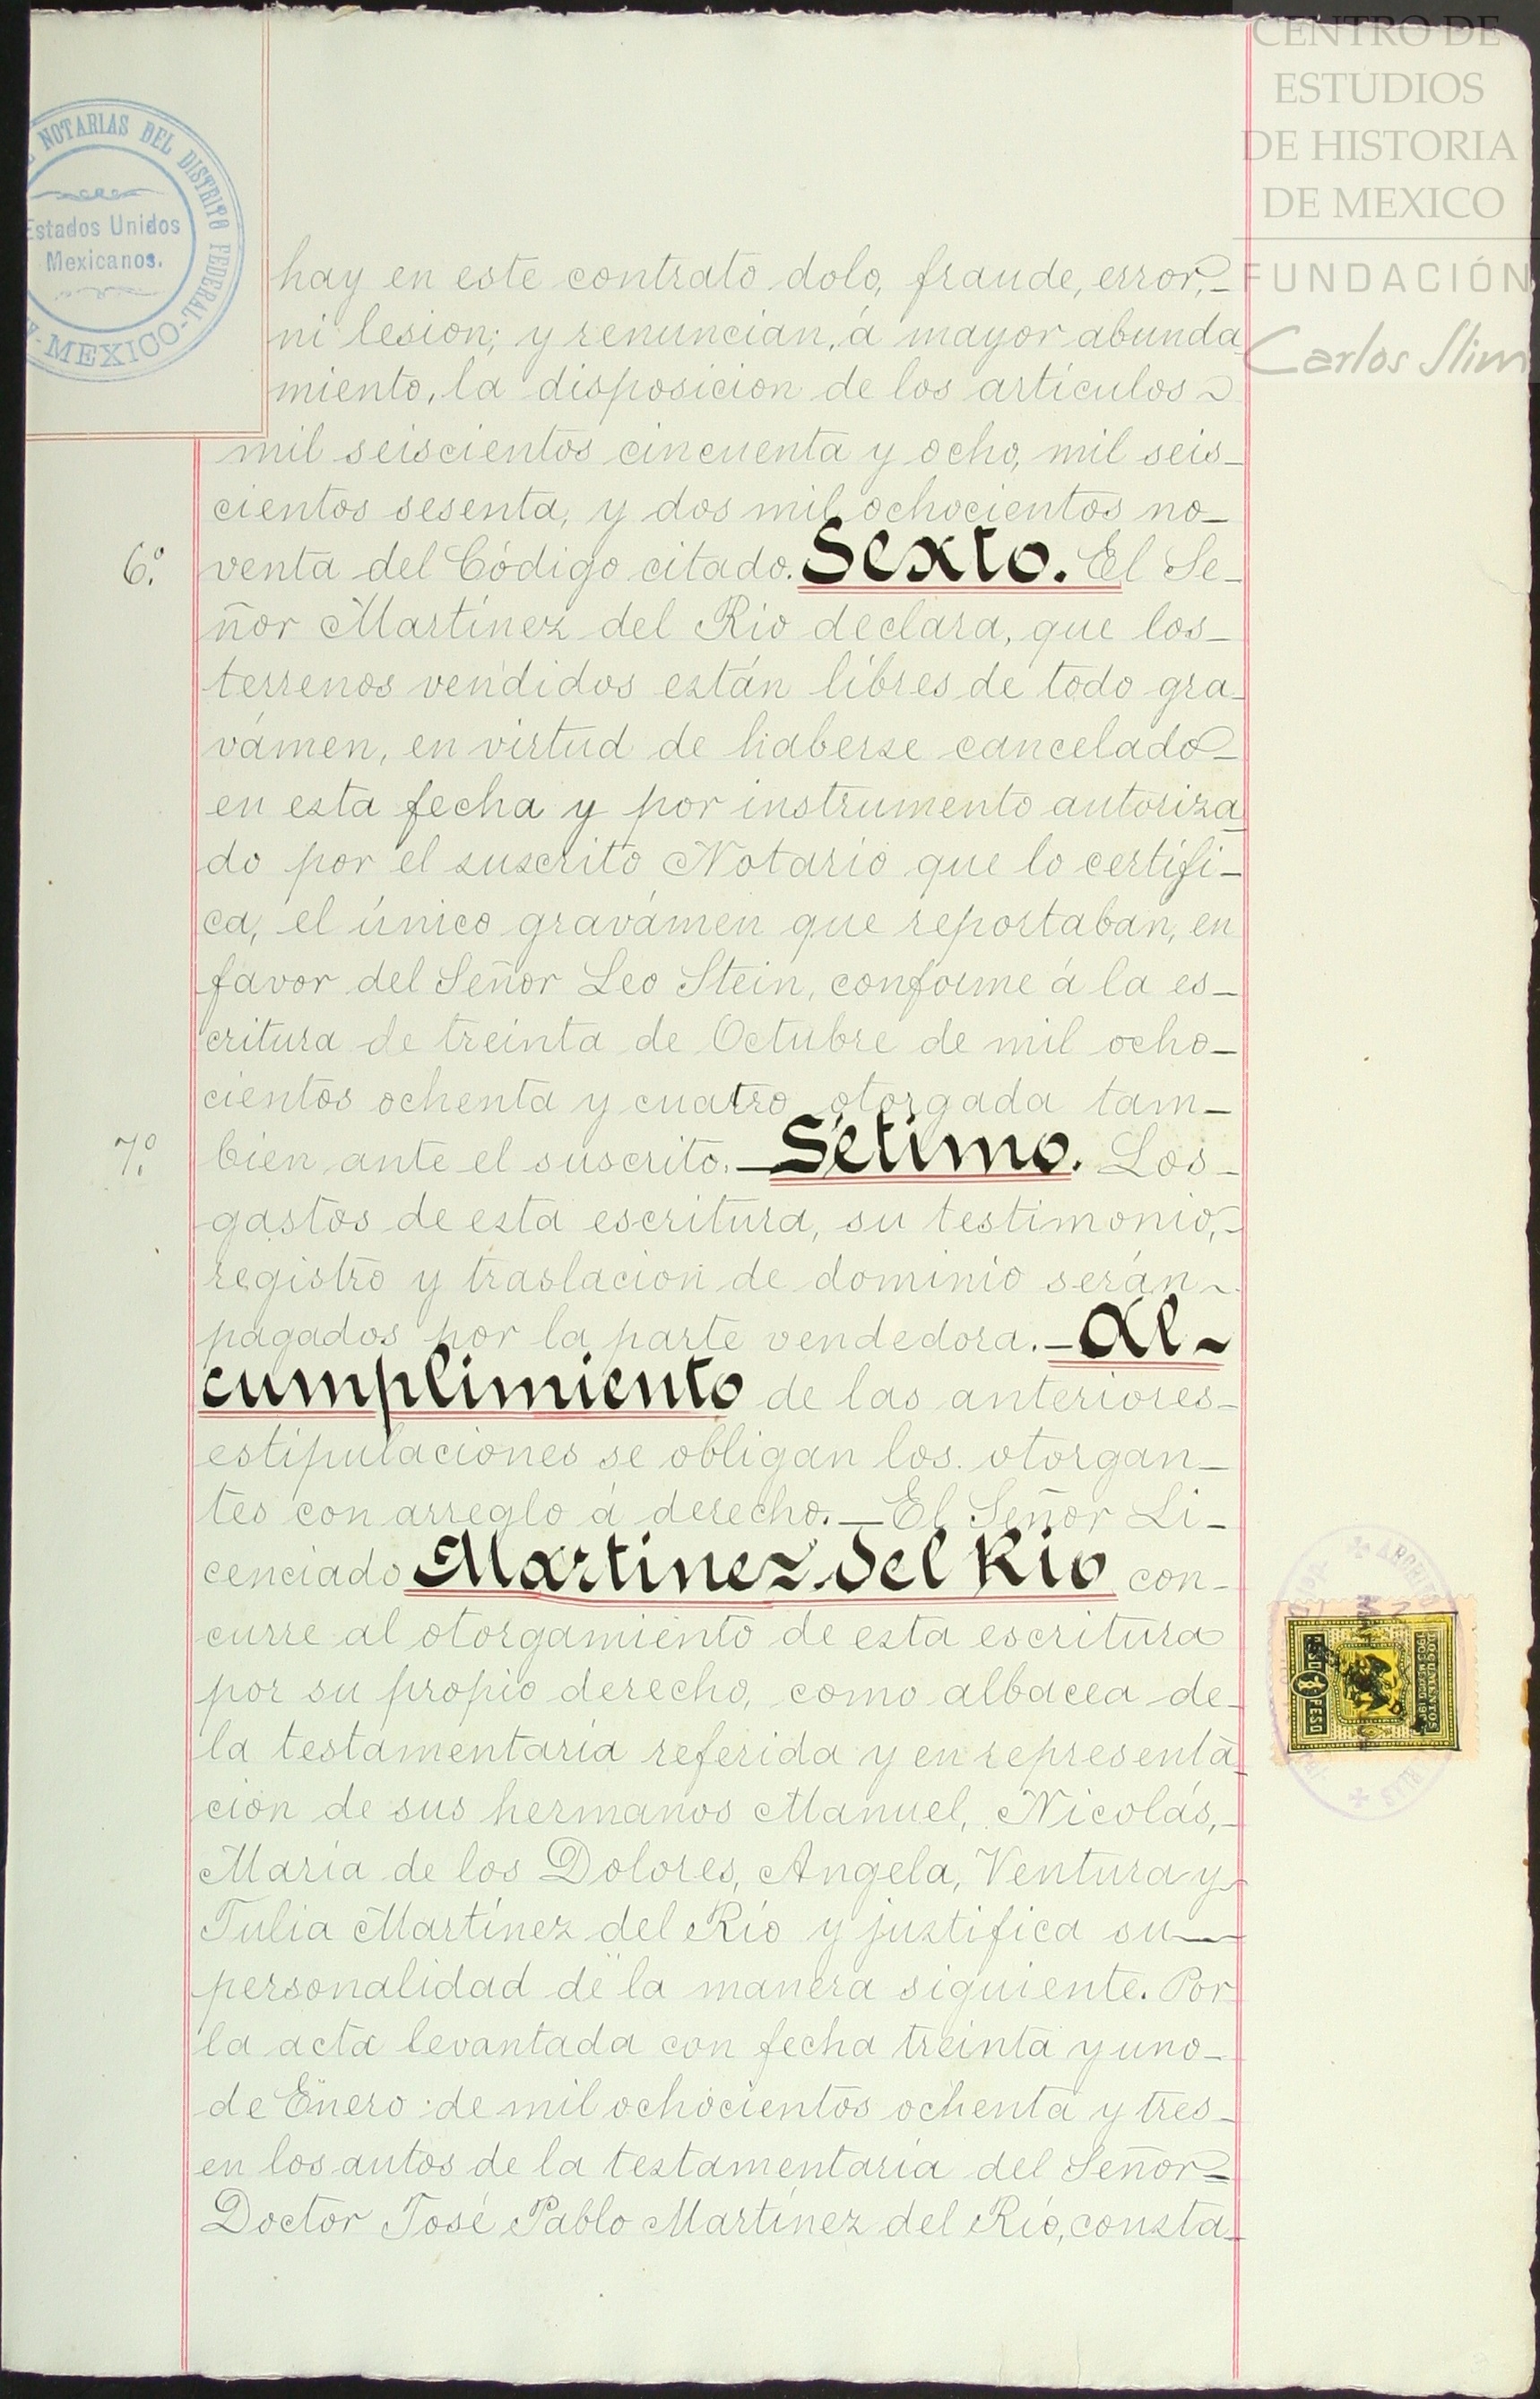 CENTRO DE
ESTUDIOS
DE HISTORIA
DE MEXICO
FUNDACIÓN
Carlos Slim
NOTARIAS DEL DISTRITO FEDERAL
MEXICO
Estados Unidos
Mexicanos.
hay en este contrato dolo, fraude, error,_
ni lesion; y renuncian, á mayor abunda
miento, la disposicion de los artículos ~
mil seiscientos cincuenta y ocho, mil seis_
cientos sesenta, y dos mil ochocientos no_
6.º venta del Código citado. Sexto. El Se_
ñor Martínez del Rio declara, que los_
terrenos vendidos están libres de todo gra_
vámen, en virtud de haberse cancelado_
en esta fecha y por instrumento autoriza_
do por el suscrito Notario que lo certifi_
ca, el único gravámen que reportaban, en
favor del Señor Leo Stein, conforme á la es_
critura de treinta de Octubre de mil ocho_
cientos ochenta y cuatro otorgada tam_
7.º bien ante el suscrito._ Sétimo. Los_
gastos de esta escritura, su testimonio,_
registro y traslacion de dominio serán~
pagados por la parte vendedora._ Al~
cumplimiento de las anteriores_
estipulaciones se obligan los otorgan_
tes con arreglo á derecho._ El Señor Li_
cenciado Martinez del Rio con_
curre al otorgamiento de esta escritura
por su propio derecho, como albacea de_
la testamentaría referida y en representa_
cion de sus hermanos Manuel, Nicolás,_
María de los Dolores, Angela, Ventura y
Julia Martínez del Río y justifica su_
personalidad de la manera siguiente. Por
la acta levantada con fecha treinta y uno_
de Enero de mil ochocientos ochenta y tres_
en los autos de la testamentaría del Señor_
Doctor José Pablo Martínez del Río, consta_
DOCUMENTOS
PESO